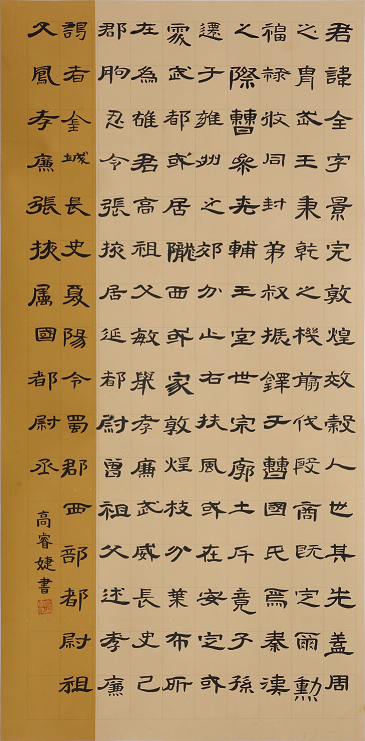 君諱全字景完敦煌效穀人世其先蓋周
之胄武王秉乾之機翦伐殷商既定爾勳
福祿攸同封弟叔振鐸于曹國氏焉秦漢
之際曹參夾輔王室世宗廓土斥竟子孫
遷于雍州之郊分止右扶風或在安定或
處武都或居隴西或家敦煌枝分葉布所
在為雄君高祖父敏舉孝廉武威長史巴
郡朐忍令張掖居延都尉曾祖父述孝廉
謁者金城長史夏陽令蜀郡西部都尉祖
父鳳孝廉張掖屬國都尉丞
高睿婕書